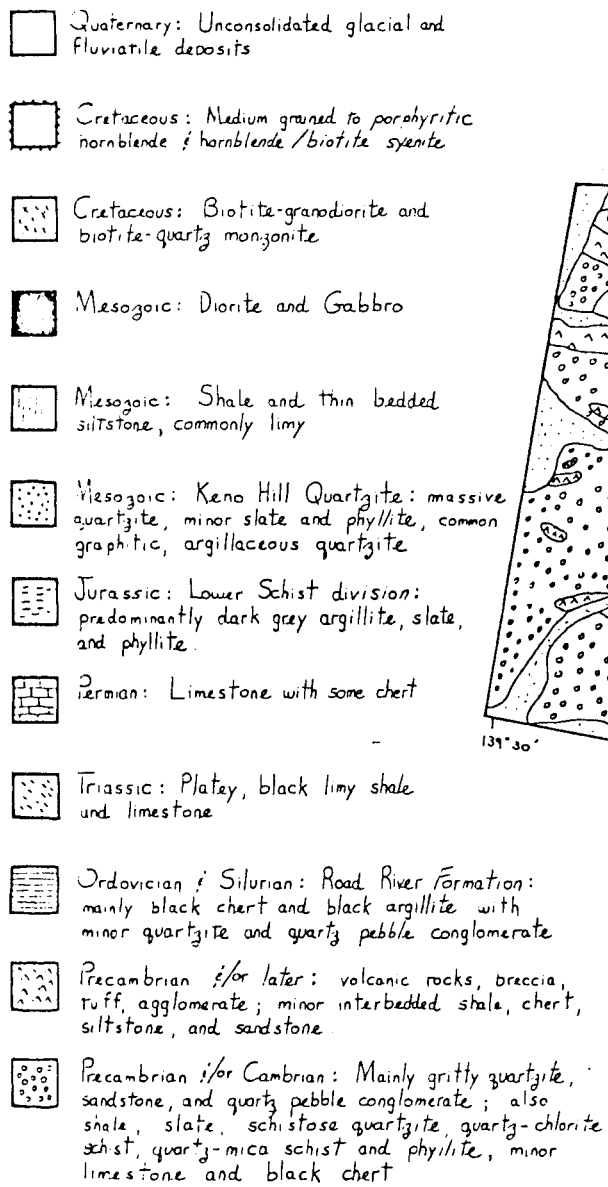 Quaternary: Unconsolidated glacial and
fluviatile deposits
Cretaceous: Medium grained to porphyritic
hornblende & hornblende/biotite syenite
Cretaceous: Biotite-granodiorite and
biotite-quartz monzonite
Mesozoic: Diorite and Gabbro
Mesozoic: Shale and thin bedded
siltstone, commonly limy
Mesozoic: Keno Hill Quartzite: massive
quartzite, minor slate and phyllite, common
graphitic, argillaceous quartzite
Jurassic: Lower Schist division:
predominantly dark grey argillite, slate,
and phyllite.
Permian: Limestone with some chert
Triassic: Platey, black limy shale
and limestone
Ordovician & Silurian: Road River Formation:
mainly black chert and black argillite with
minor quartzite and quartz pebble conglomerate
Precambrian &/or later: volcanic rocks, breccia,
tuff, agglomerate; minor interbedded shale, chert,
siltstone, and sandstone
Precambrian &/or Cambrian: Mainly gritty quartzite,
sandstone, and quartz pebble conglomerate; also
shale, slate, schistose quartzite, quartz-chlorite
schist, quartz-mica schist and phyllite, minor
limestone and black chert
139°30'